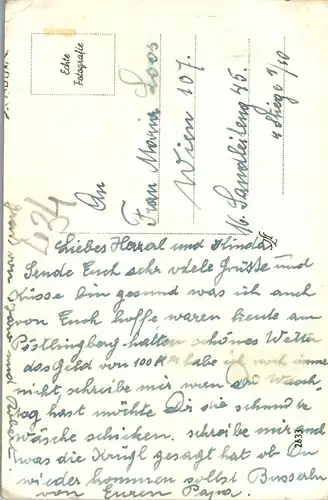 Echte
Fotografie
An
Frau Maria Loos
Wien 107.
16. Sandleiteng 45.
4 Stiege 9/10
434
Liebes Herzerl und Kinder
Sende Euch sehr viele Grüße und
Küsse bin gesund was ich auch
von Euch hoffe waren heute am
Pöstlingberg hatten schönes Wetter
das Geld von 100 habe ich noch immer
nicht, schreibe mir wan du Wasch-
tag hast möchte Dir die schmutz
wäsche schicken. schreibe mir und
was die Krügl gesagt hat ob Du
wieder kommen sollst Busserln
von Euren Papa.
2833